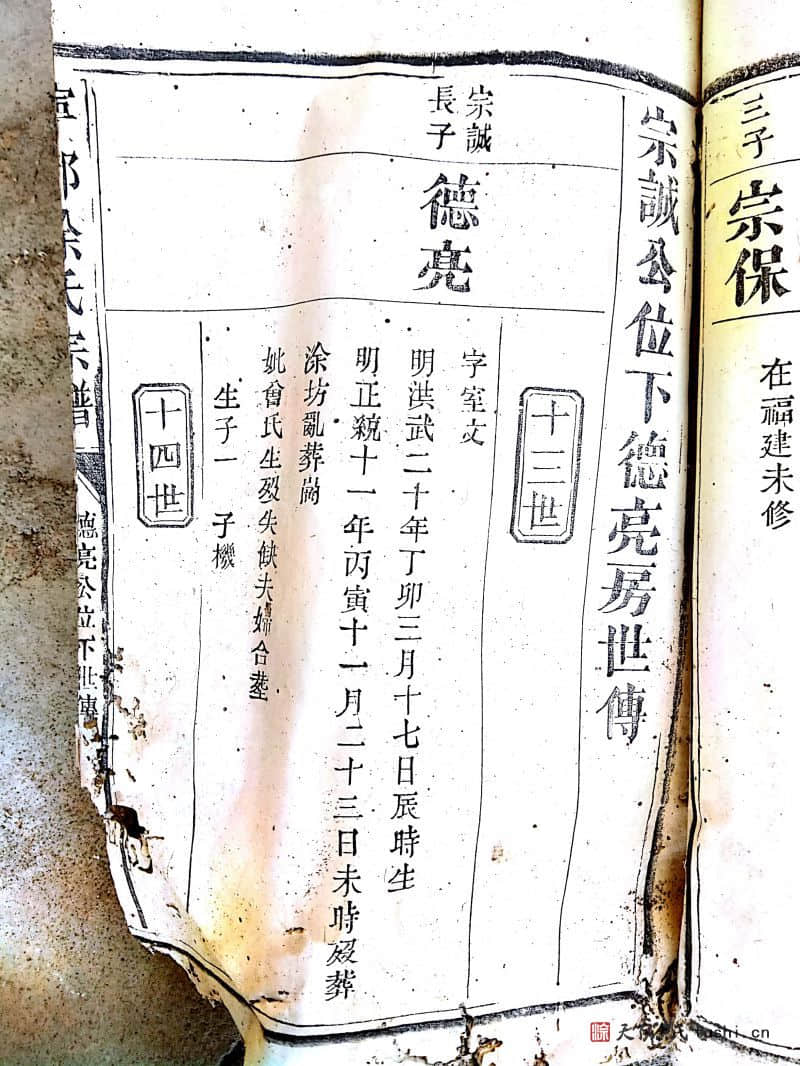 三子
宗保
在福建未修
宗誠公位下德亮房世傳
十三世
宗誠
長子
德亮
字室文
明洪武二十年丁卯三月十七日辰時生
明正統十一年丙寅十一月二十三日未時歿葬
涂坊亂葬崗
妣曾氏生歿失缺夫婦合塟
生子一 子機
十四世
氏宗譜
德亮公位下世傳